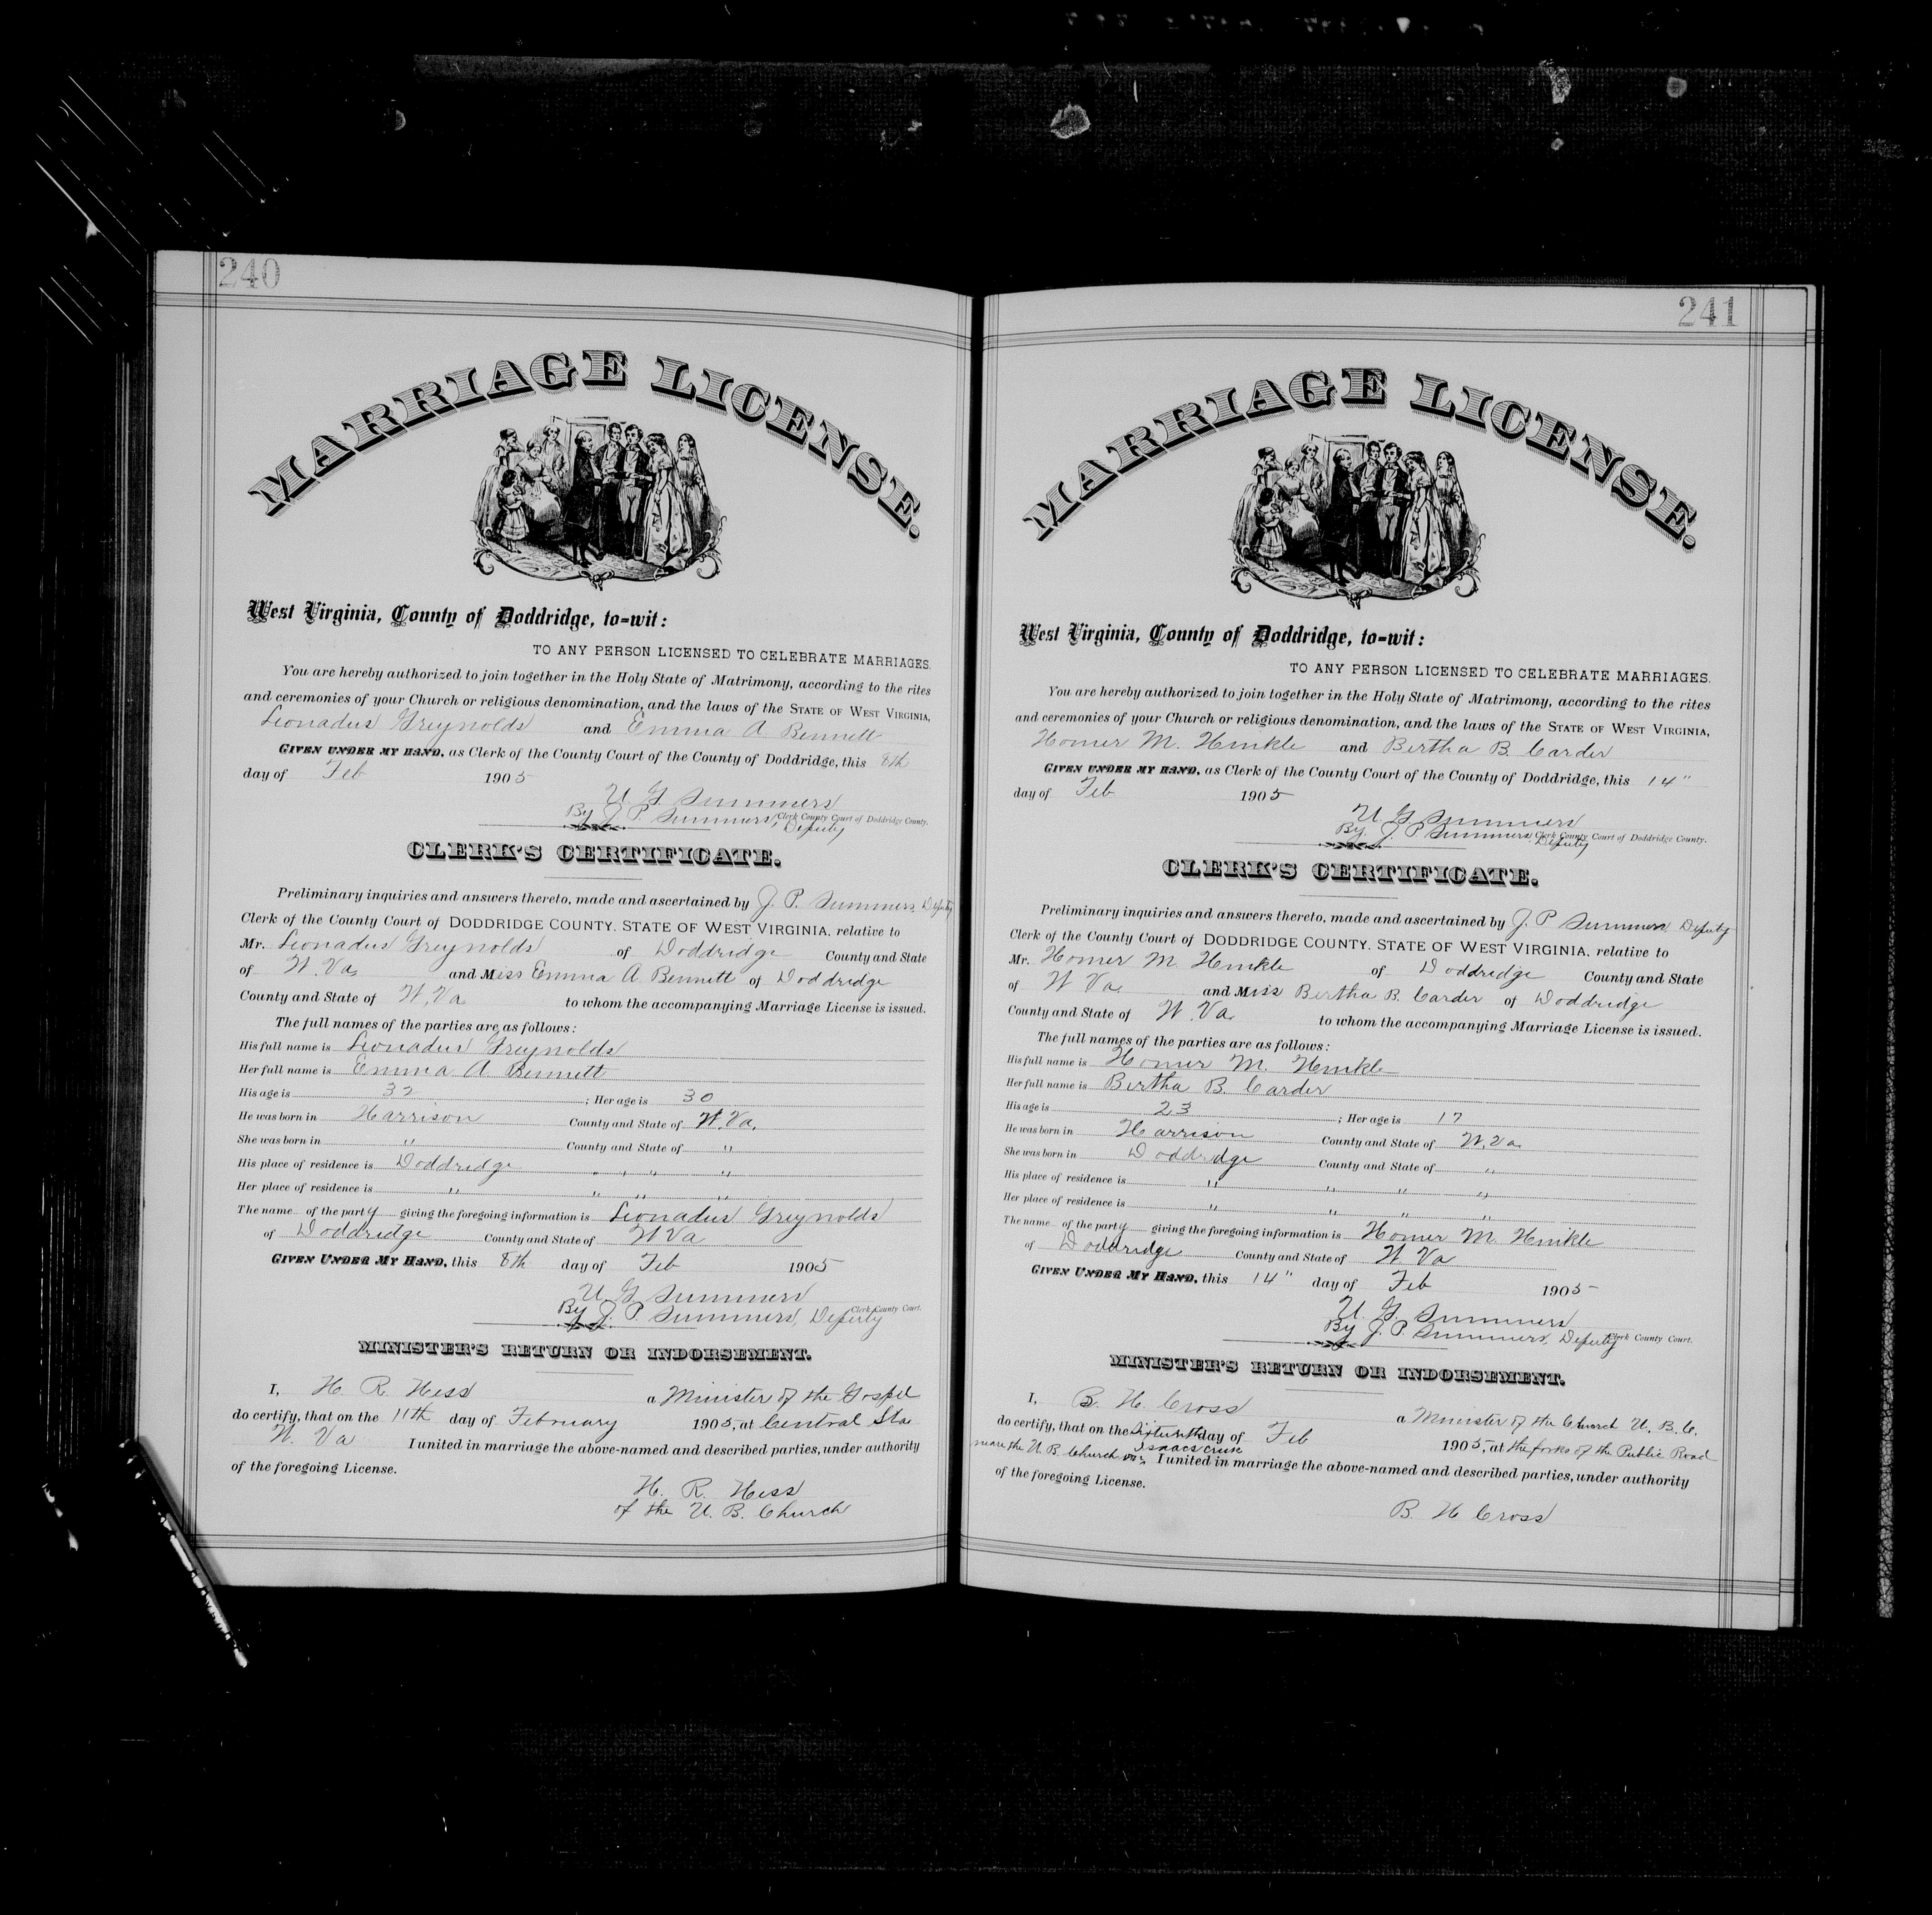 240
MARRIAGE LICENSE.
West Virginia, County of Doddridge, to=wit:
TO ANY PERSON LICENSED TO CELEBRATE MARRIAGES.
You are hereby authorized to join together in the Holy State of Matrimony, according to the rites
and ceremonies of your Church or religious denomination, and the laws of the STATE OF WEST VIRGINIA,
Leonadus Greynolds and Emma A. Bennett
GIVEN UNDER MY HAND, as Clerk of the County Court of the County of Doddridge, this 8th
day of Feb 1905
U G Summers
By J P Summers, Clerk County Court of Doddridge County.
Deputy
CLERK'S CERTIFICATE.
Preliminary inquiries and answers thereto, made and ascertained by J. P. Summers, Deputy
Clerk of the County Court of DODDRIDGE COUNTY, STATE OF WEST VIRGINIA, relative to
Mr. Leonadus Greynolds of Doddridge County and State
of W. Va, and Miss Emma A Bennett of Doddridge
County and State of W. Va to whom the accompanying Marriage License is issued.
The full names of the parties are as follows:
His full name is Leonadus Greynolds
Her full name is Emma A Bennett
His age is 32 ; Her age is 30
He was born in Harrison County and State of W. Va,
She was born in " County and State of "
His place of residence is Doddridge " " " "
Her place of residence is " " " "
The name of the party giving the foregoing information is Leonadus Greynolds
of Doddridge County and State of W Va
GIVEN UNDER MY HAND, this 8th day of Feb 1905
U G Summers
By J. P. Summers, Deputy Clerk County Court.
MINISTER'S RETURN OR INDORSEMENT.
I, H. R. Hess a Minister of the Gospel
do certify, that on the 11th day of February 1905, at Central Sta
W. Va I united in marriage the above-named and described parties, under authority
of the foregoing License.
H. R. Hess
of the U. B. Church
241
MARRIAGE LICENSE.
West Virginia, County of Doddridge, to=wit:
TO ANY PERSON LICENSED TO CELEBRATE MARRIAGES.
You are hereby authorized to join together in the Holy State of Matrimony, according to the rites
and ceremonies of your Church or religious denomination, and the laws of the STATE OF WEST VIRGINIA,
Homer M. Hinkle and Bertha B. Carder
GIVEN UNDER MY HAND, as Clerk of the County Court of the County of Doddridge, this 14"
day of Feb 1905
U G Summers
By. J P Summers Clerk County Court of Doddridge County.
Deputy
CLERK'S CERTIFICATE.
Preliminary inquiries and answers thereto, made and ascertained by J. P Summers Deputy
Clerk of the County Court of DODDRIDGE COUNTY, STATE OF WEST VIRGINIA, relative to
Mr. Homer M. Hinkle of Doddridge County and State
of W Va, and Miss Bertha B. Carder of Doddridge
County and State of W. Va, to whom the accompanying Marriage License is issued.
The full names of the parties are as follows:
His full name is Homer M. Hinkle
Her full name is Bertha B. Carder
His age is 23 ; Her age is 17
He was born in Harrison County and State of W. Va
She was born in Doddridge County and State of "
His place of residence is " " " "
Her place of residence is " " " "
The name of the party giving the foregoing information is Homer M. Hinkle
of Doddridge County and State of W Va
GIVEN UNDER MY HAND, this 14" day of Feb 1905
U. G. Summers
By J. P. Summers, Deputy Clerk County Court.
MINISTER'S RETURN OR INDORSEMENT.
I, B. H. Cross a Minister of the Church U. B. C.
do certify, that on the Sixteenth day of Feb 1905, at the forks of the Public Road
near the U. B. Church on Isaacs creek I united in marriage the above-named and described parties, under authority
of the foregoing License.
B. H Cross